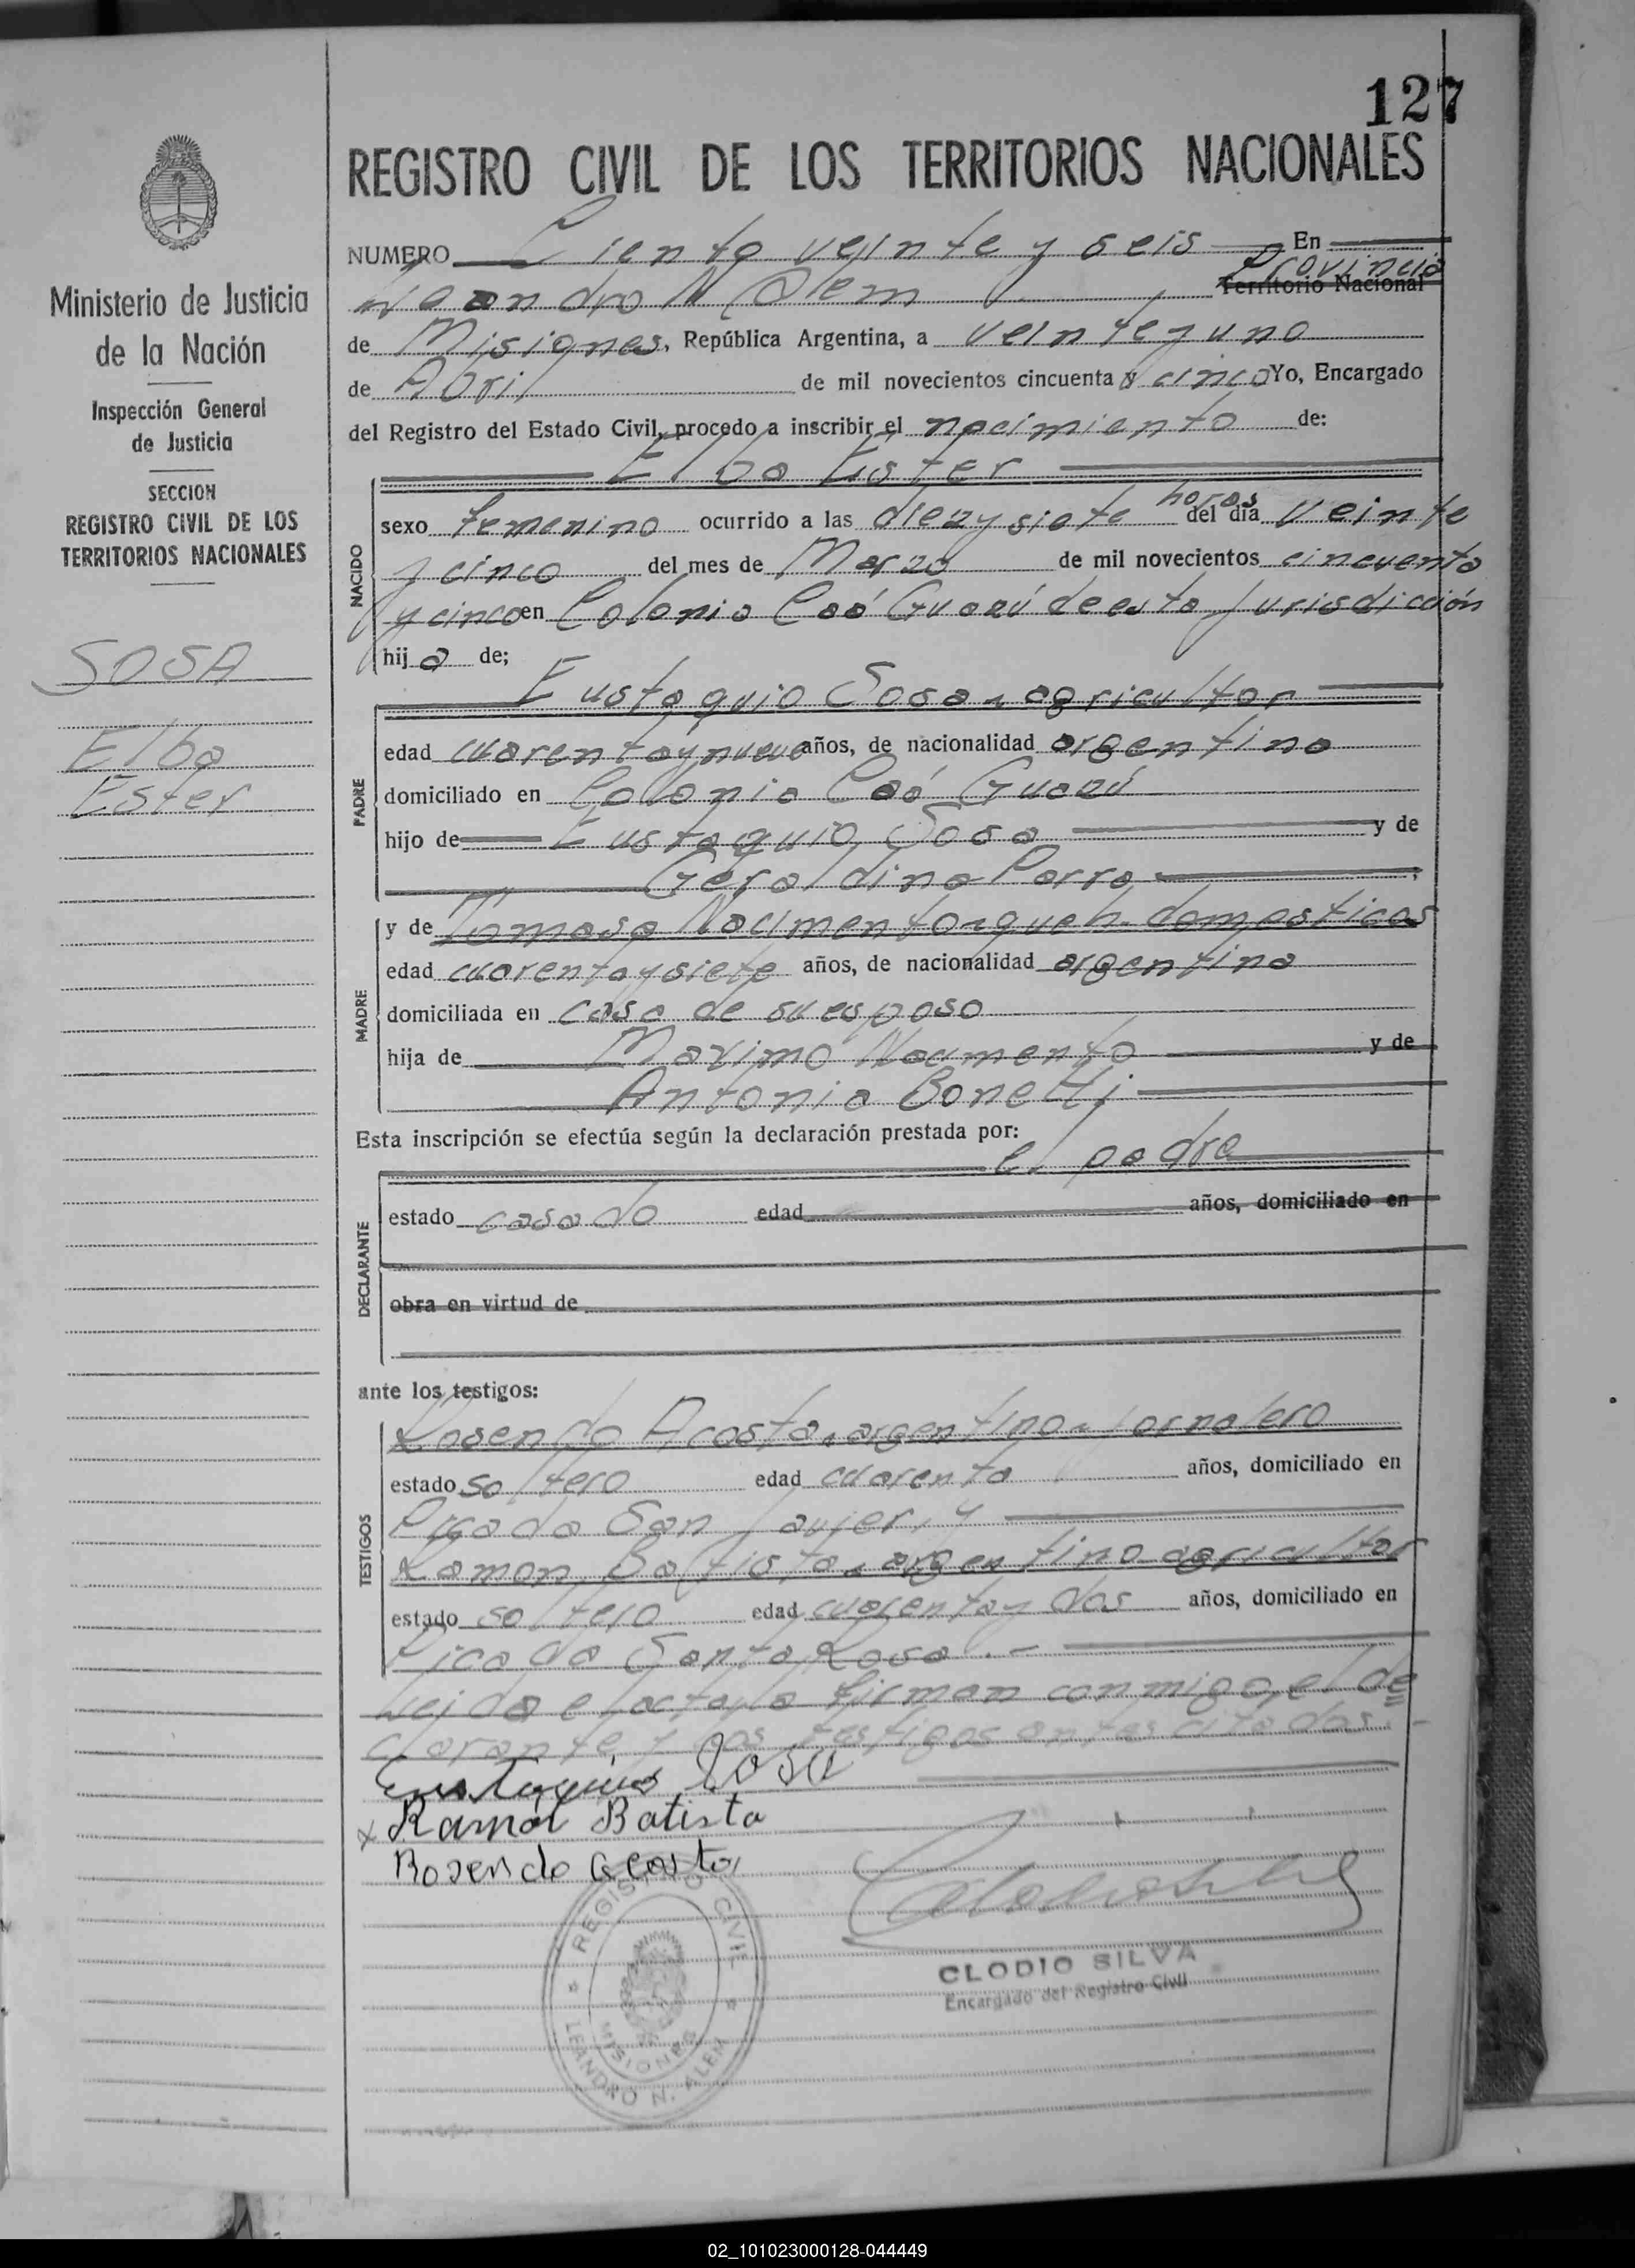 127
REGISTRO CIVIL DE LOS TERRITORIOS NACIONALES
NUMERO Ciento veinte y seis En
Leandro N Alem Provincia
Territorio Nacional
de Misiones, República Argentina, a veinteyuno
de Abril de mil novecientos cincuenta y cinco Yo, Encargado
del Registro del Estado Civil, procedo a inscribir el nacimiento de:
Elba Ester
NACIDO
sexo femenino ocurrido a las diezysiete horas del día veinte
y cinco del mes de Marzo de mil novecientos cincuenta
y cinco en Colonia Caá Guazú de esta Jurisdicción
hij a de;
Eustaquio Sosa - agricultor
PADRE
edad cuarentaynueve años, de nacionalidad argentino
domiciliado en Colonia Caá Guazú
hijo de Eustaquio Sosa y de
Geraldina Parra
MADRE
y de Tomasa Nacimento - queh. domesticos
edad cuarentaysiete años, de nacionalidad argentina
domiciliada en casa de su esposo
hija de Maximo Nacimento y de
Antonia Bonetti
Esta inscripción se efectúa según la declaración prestada por:
el padre
DECLARANTE
estado casado edad años, domiciliado en
obra en virtud de
ante los testigos:
TESTIGOS
Rosendo Acosta - argentino - jornalero
estado soltero edad cuarenta años, domiciliado en
Picada San Javier, y
Ramon Batista - argentino agricultor
estado soltero edad cuarentay dos años, domiciliado en
Picada Santa Rosa . -
Leida el acta, la firman conmigo, el de
clarante, y los testigos antes citados. -
Eustaquio Sosa
x Ramón Batista
Rosendo Acosta
REGISTRO CIVIL
MISIONES
LEANDRO N. ALEM
CLODIO SILVA
Encargado del Registro Civil
Ministerio de Justicia
de la Nación
Inspección General
de Justicia
SECCION
REGISTRO CIVIL DE LOS
TERRITORIOS NACIONALES
SOSA
Elba
Ester
02_101023000128-044449